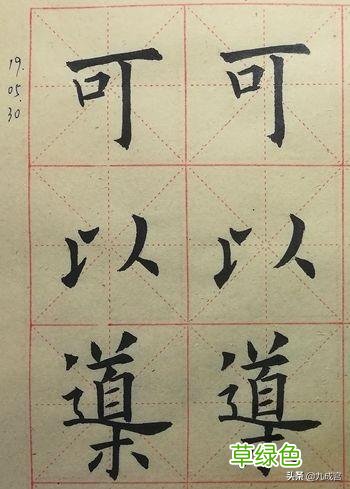 19.
05.
30
可 可
以 以
導 導
草绿色
头条 @九成宫